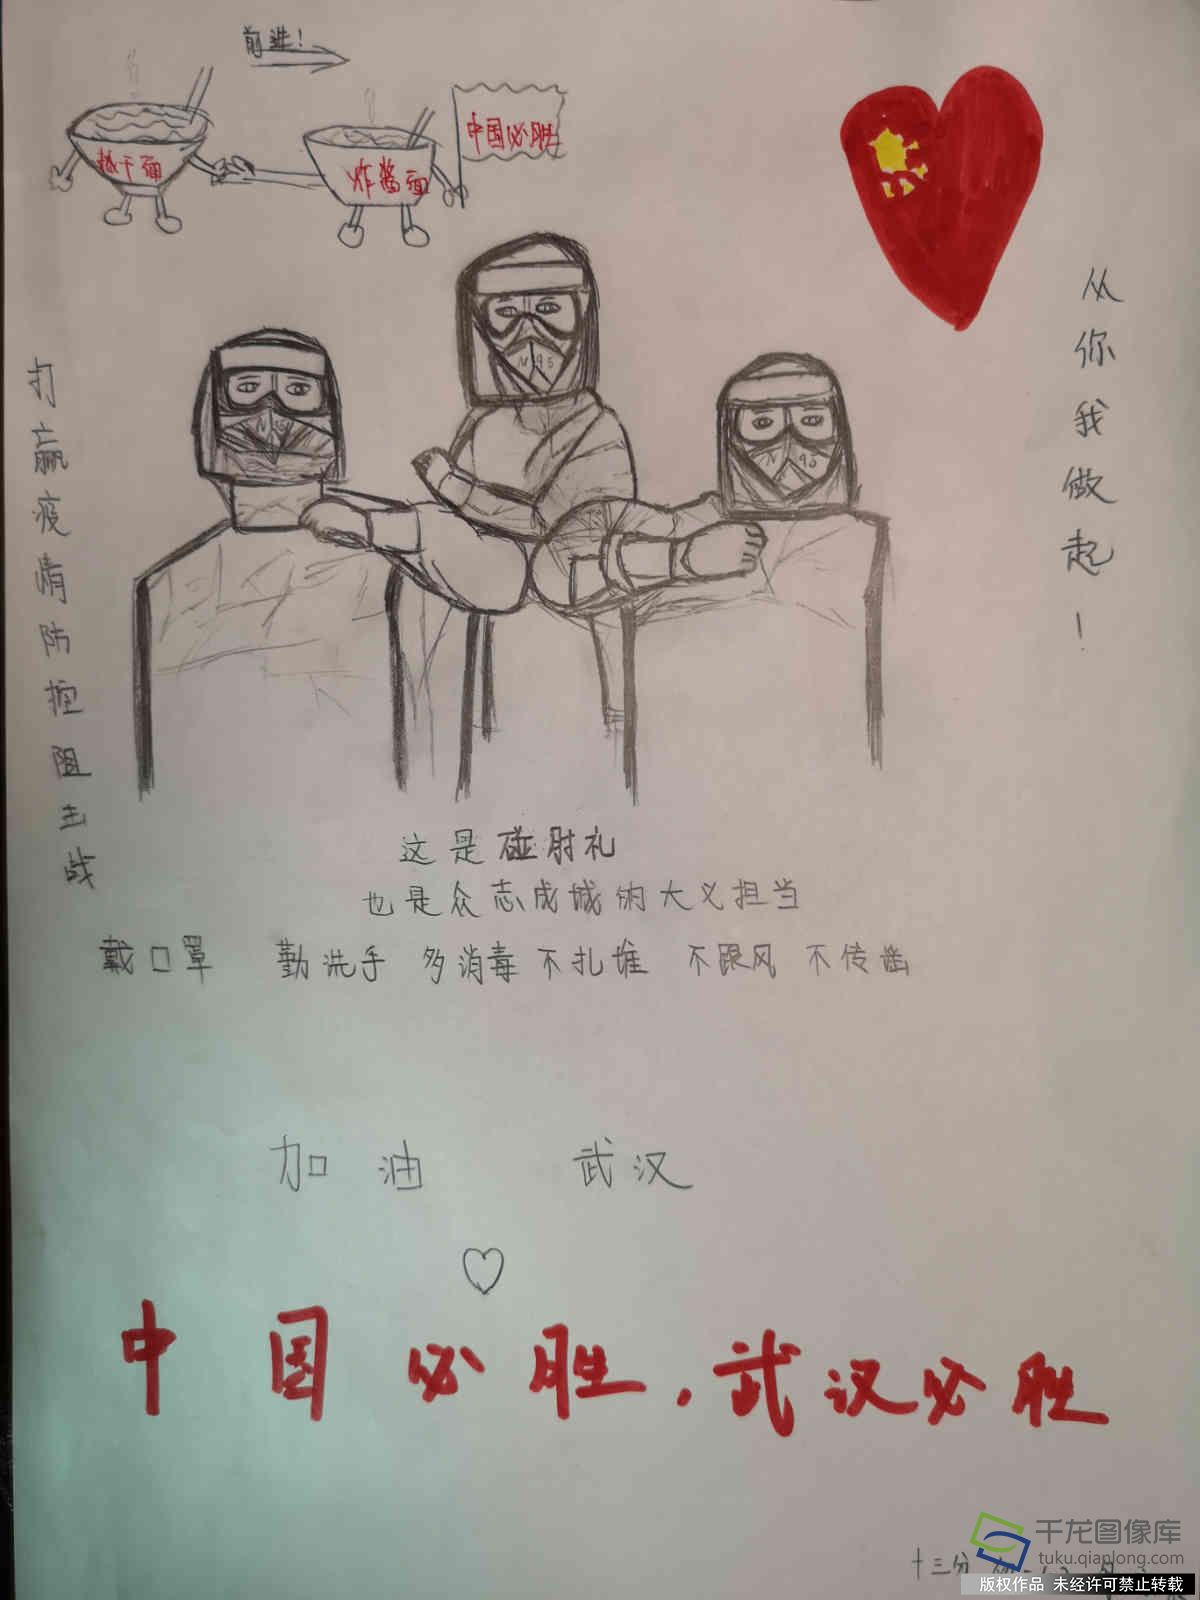 前进!
热干面
炸酱面
中国必胜
从你我做起!
打赢疫情防控阻击战
N95
N95
N95
这是碰肘礼
也是众志成城的大义担当
戴口罩 勤洗手 多消毒 不扎堆 不跟风 不传谣
加油 武汉
中国必胜,武汉必胜
十三分
千龙图像库
tuku.qianlong.com
版权作品 未经许可禁止转载